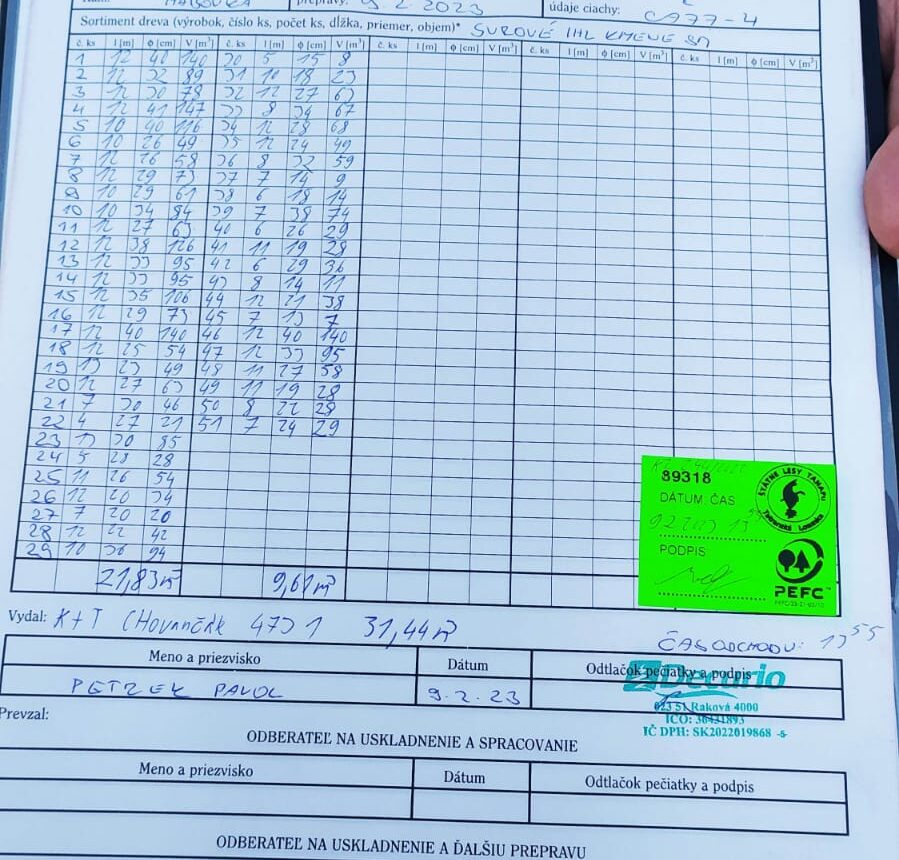 prepravy: 9.2.2023
údaje ciachy: C977-4
Sortiment dreva (výrobok, číslo ks, počet ks, dĺžka, priemer, objem)* SUROVÉ IHL KMENE SM
č. ks l [m] ϕ [cm] V [m³] č. ks l [m] ϕ [cm] V [m³] č. ks l [m] ϕ [cm] V [m³] č. ks l [m] ϕ [cm] V [m³] č. ks l [m] ϕ [cm] V [m³]
1 12 40 140 30 5 15 8
2 12 32 89 31 10 18 23
3 12 30 78 32 12 27 63
4 12 41 147 33 8 34 67
5 10 40 116 34 12 28 68
6 10 26 49 35 12 24 49
7 12 26 58 36 8 32 59
8 12 29 73 37 7 14 9
9 10 29 61 38 6 18 14
10 10 34 84 39 7 38 74
11 12 27 63 40 6 26 29
12 12 38 126 41 11 19 28
13 12 33 95 42 6 29 36
14 12 33 95 43 8 14 11
15 12 35 106 44 12 21 38
16 12 29 73 45 7 13 7
17 12 40 140 46 12 40 140
18 12 25 54 47 12 33 95
19 13 23 49 48 11 27 58
20 12 27 63 49 11 19 28
21 7 30 46 50 8 22 28
22 4 27 21 51 7 24 29
23 13 30 85
24 5 28 28
25 11 26 54
26 12 20 34
27 7 20 20
28 12 22 42
29 10 36 94
21,83m³ 9,61m³
89318
DÁTUM: ČAS
9.2.2023 13
PODPIS
ŠTÁTNE LESY TANAPU
Tatranská Lomnica
PEFC™
Vydal: K+T CHovančák 4731 31,44m³
ČAS ODCHODU: 13 55
Meno a priezvisko Dátum Odtlačok pečiatky a podpis
PETREK PAVOL 9.2.23
Decorio
023 51 Raková 4000
IČO: 36431893
IČ DPH: SK2022019868 -6-
Prevzal:
ODBERATEĽ NA USKLADNENIE A SPRACOVANIE
Meno a priezvisko Dátum Odtlačok pečiatky a podpis
ODBERATEĽ NA USKLADNENIE A ĎALŠIU PREPRAVU